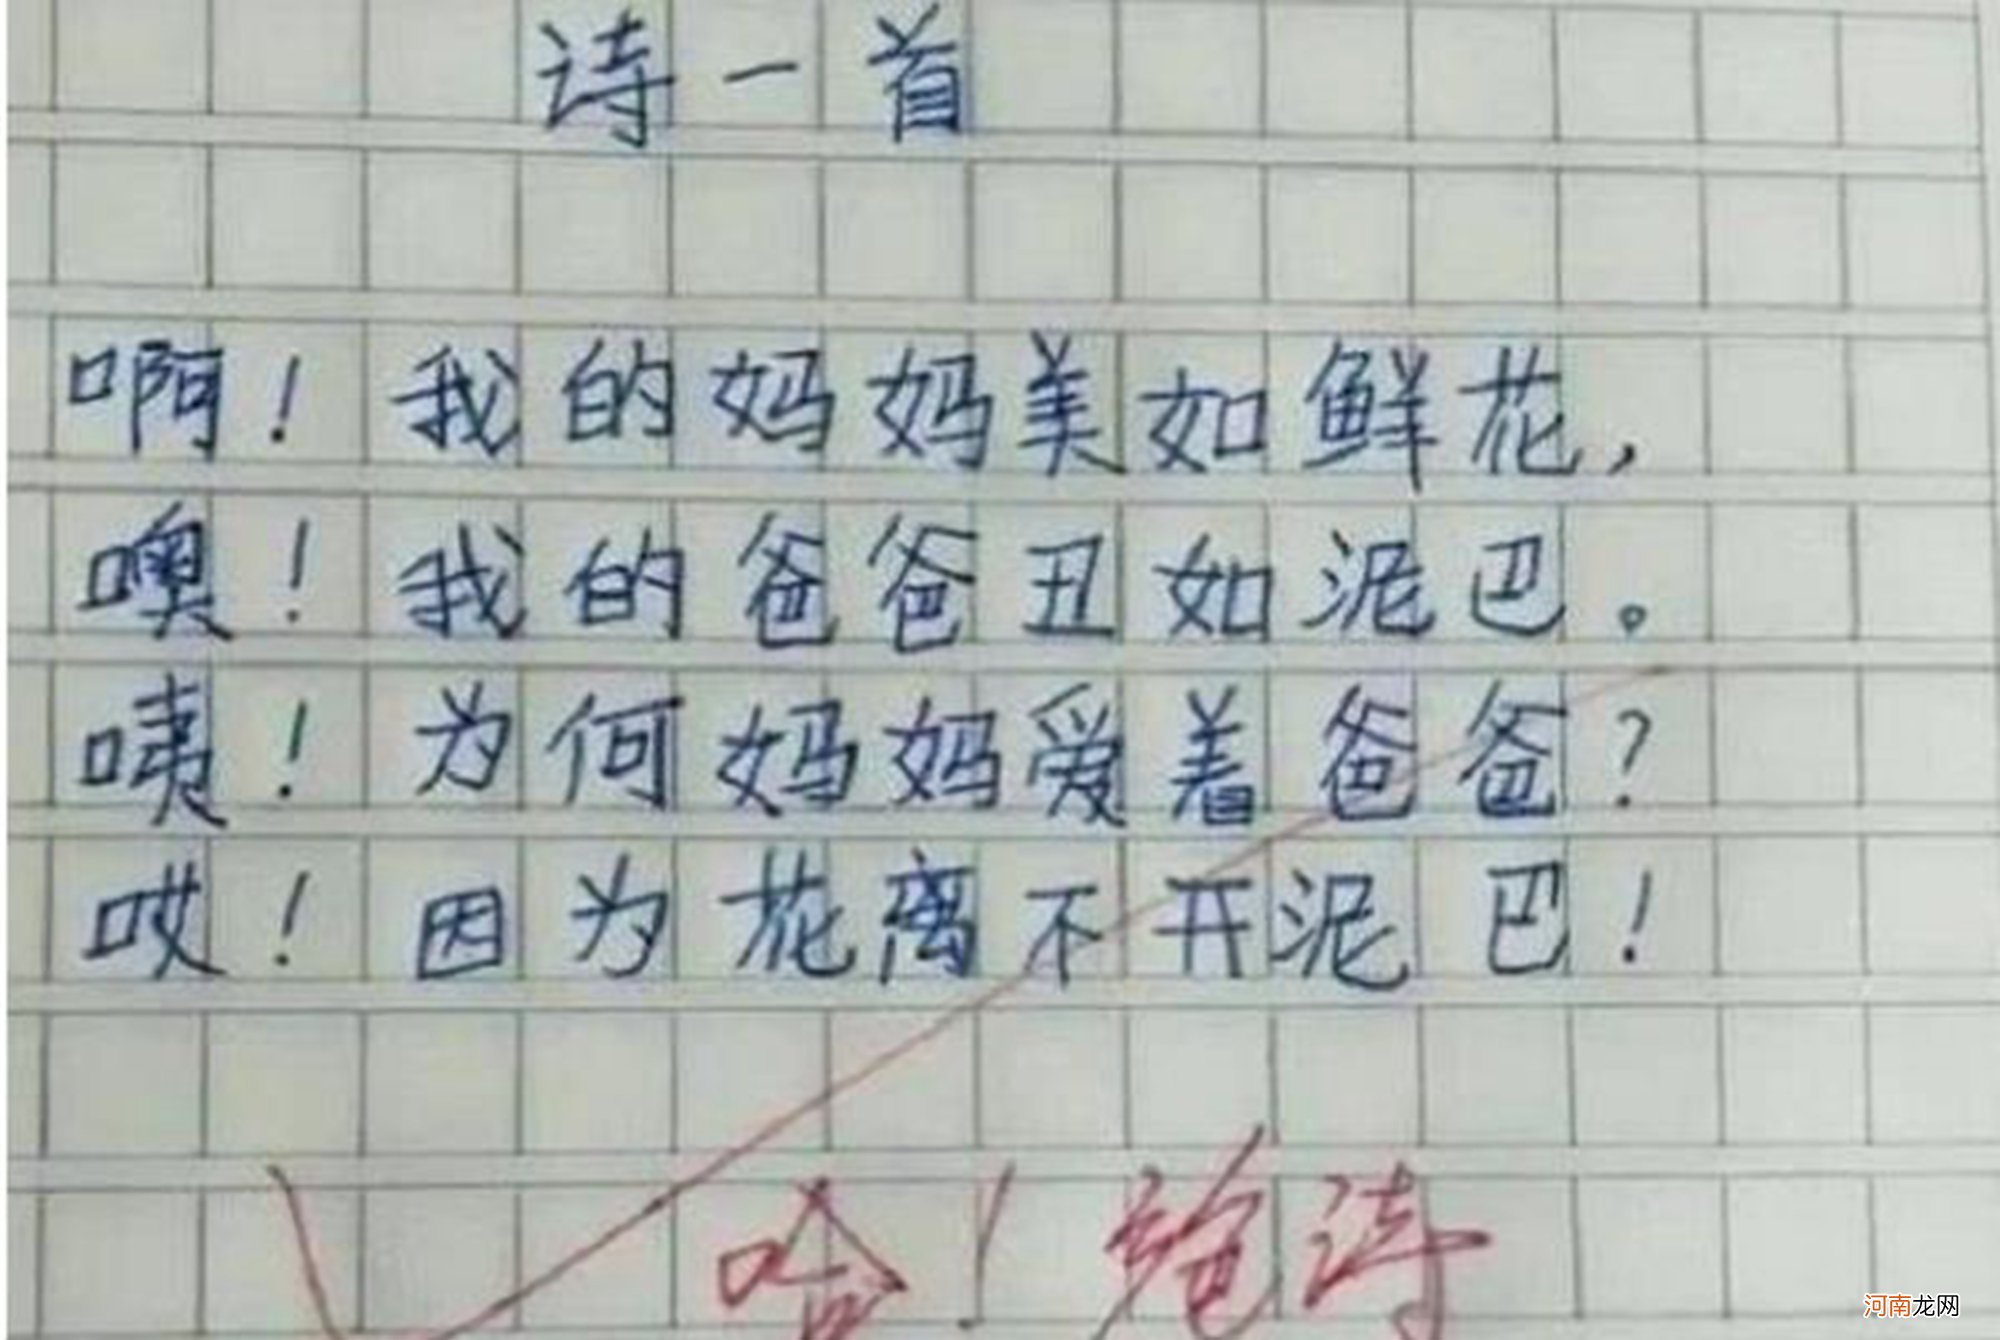 诗一首
啊！我的妈妈美如鲜花，
噢！我的爸爸丑如泥巴。
咦！为何妈妈爱着爸爸？
哎！因为花离不开泥巴！
哈！绝诗
河南龙网